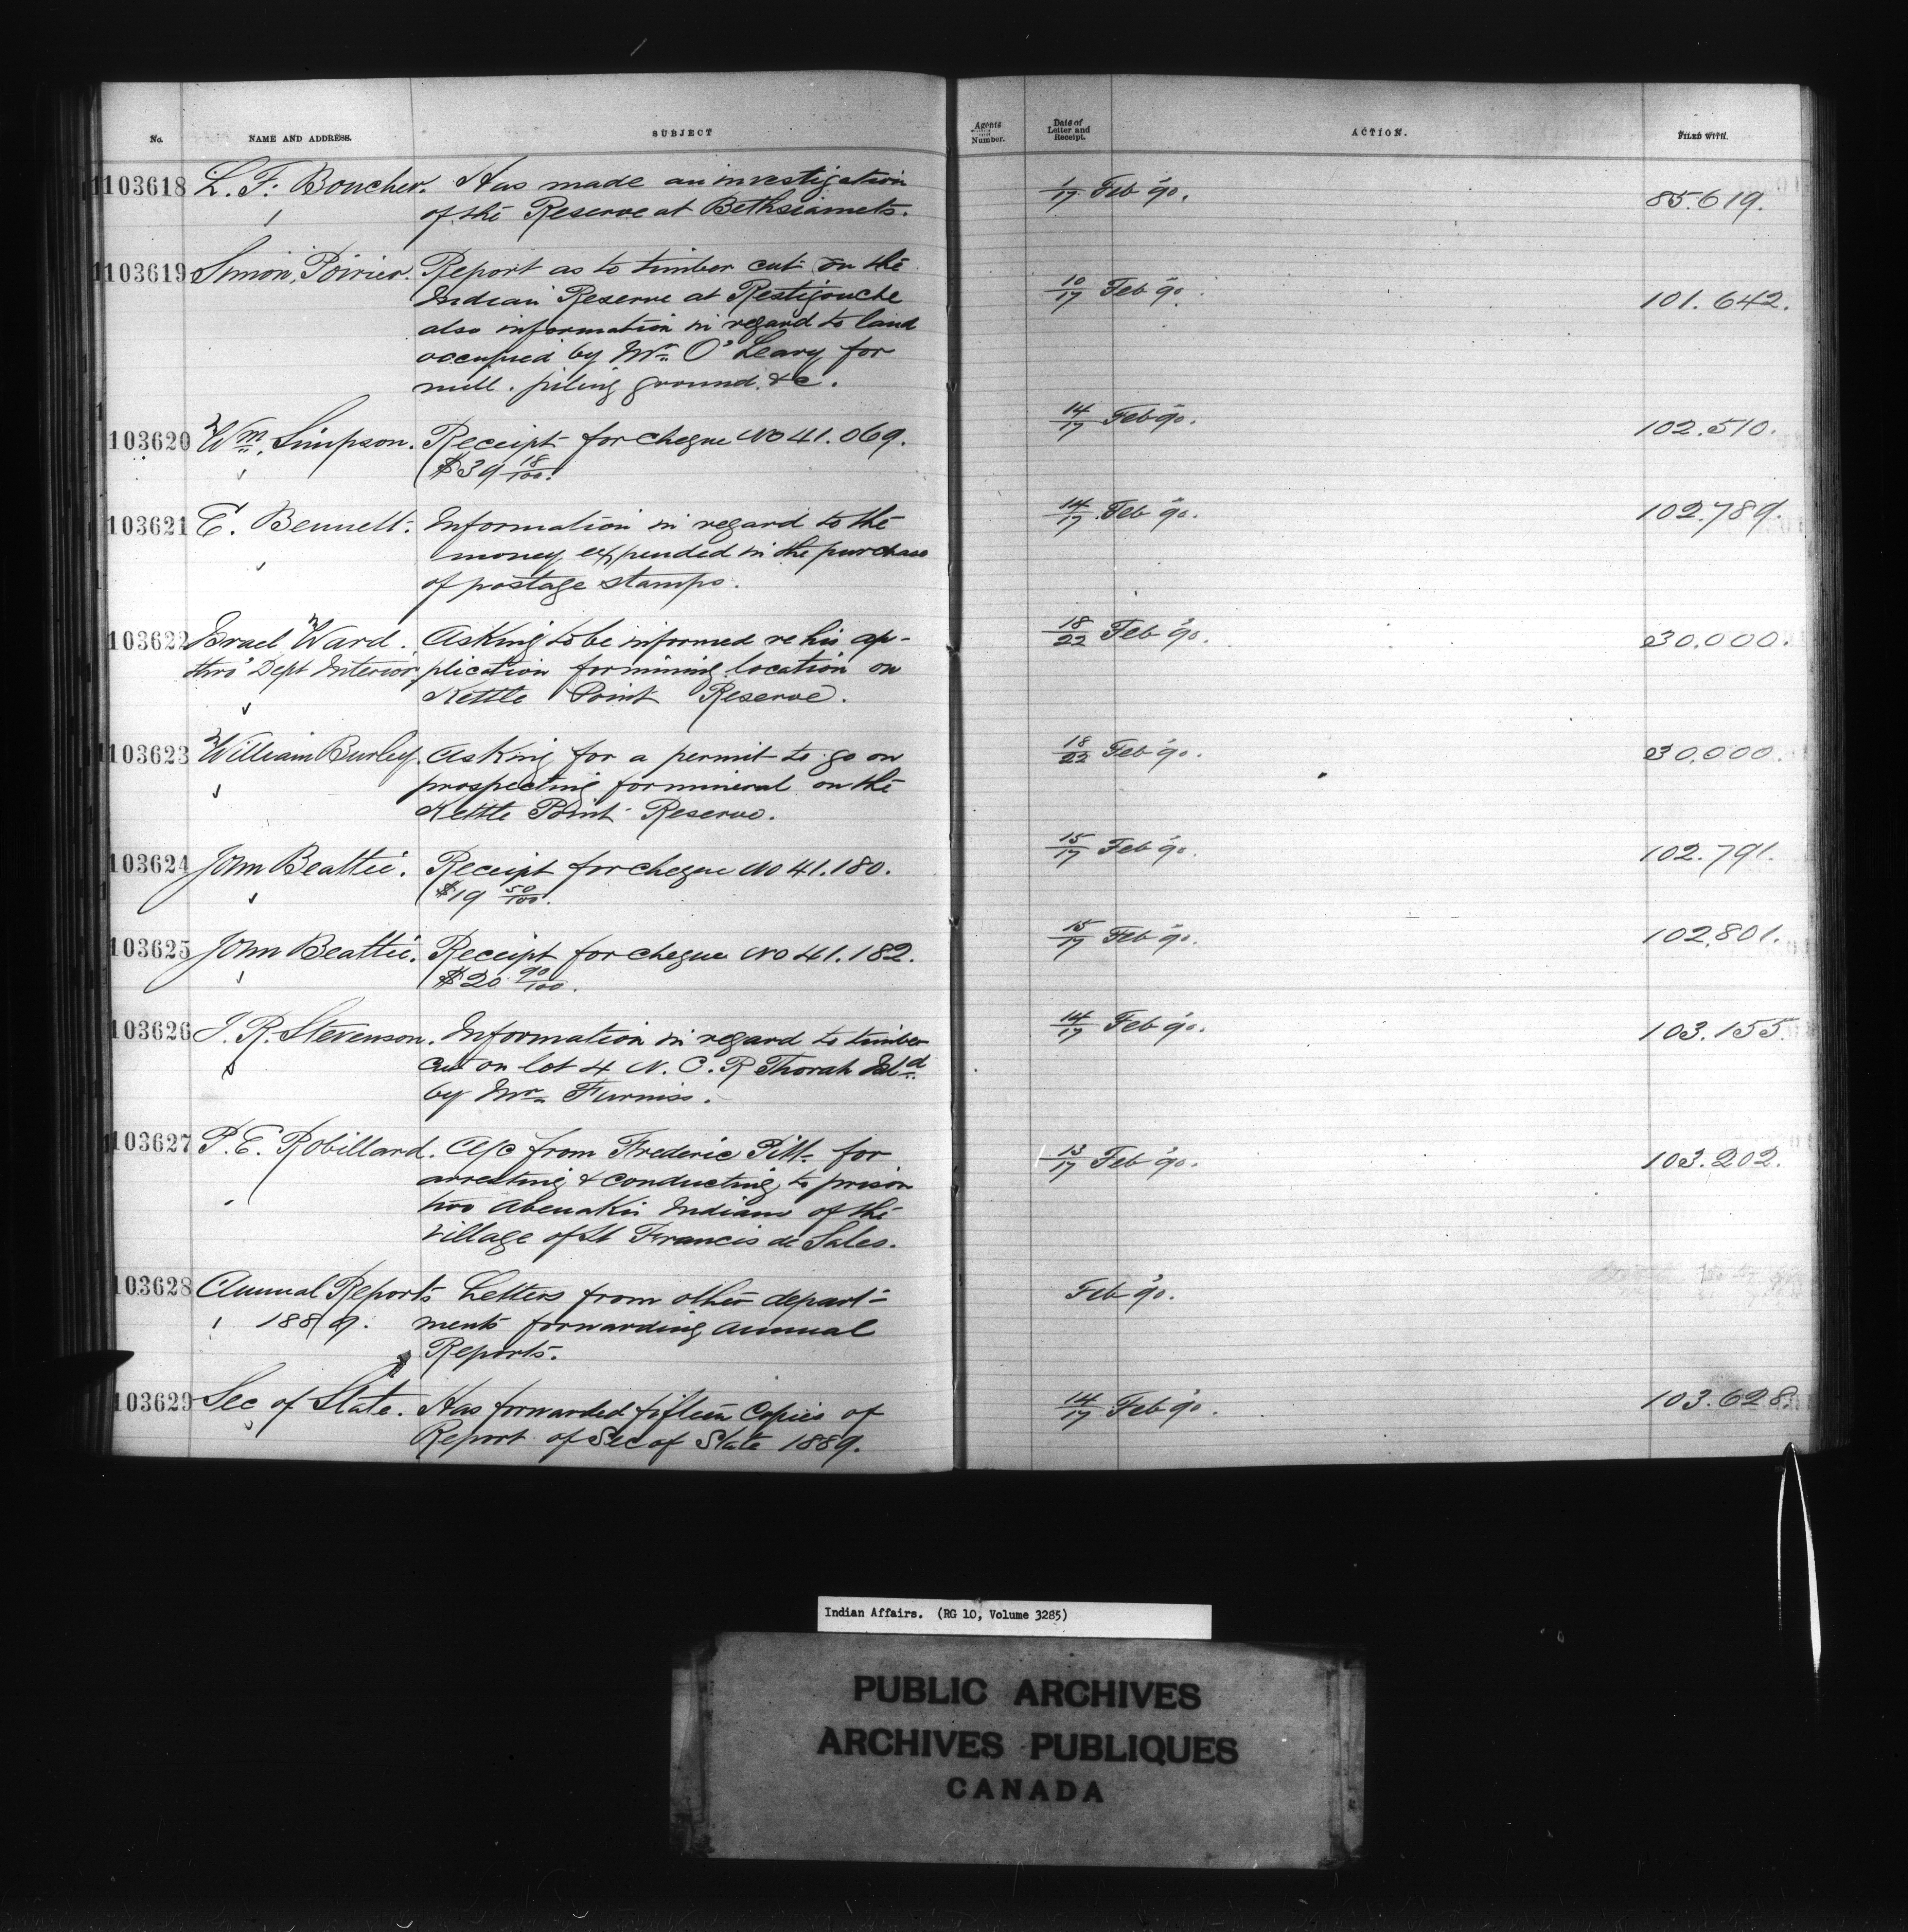 No.
NAME AND ADDRESS.
SUBJECT
Agents Number.
Date of Letter and Receipt.
ACTION.
FILED WITH.
103618 L. F. Boucher. Has made an investigation 1/17 Feb '90. 85.619.
of the Reserve at Bethsiamets.
103619 Simon Poirier. Report as to timber cut on the 10/17 Feb 90. 101.642.
Indian Reserve at Restigouche
also information in regard to land
occupied by Mr. O'Leary for
mill. piling ground. &c.
103620 Wm. Simpson. Receipt for cheque No 41.069. 14/17 Feb 90. 102.510.
$39 18/100.
103621 E. Bennett. Information in regard to the 14/17 Feb 90. 102.789.
money expended in the purchase
of postage stamps.
103622 Israel Ward. Asking to be informed re his ap- 18/22 Feb 90. 30.000.
thro' Dept Interior plication for mining location on
Kettle Point Reserve.
103623 William Burley. Asking for a permit to go on 18/22 Feb 90. 30.000.
prospecting for mineral on the
Kettle Point Reserve.
103624 John Beattie. Receipt for cheque No 41.180. 15/17 Feb 90. 102.791.
$19 50/100.
103625 John Beattie. Receipt for cheque No 41.182. 15/17 Feb 90. 102.801.
$20 90/100.
103626 J. R. Stevenson. Information in regard to timber 14/17 Feb 90. 103.155.
cut on lot 4 N. C. R Thorah Isld
by Mr. Furniss.
103627 P. E. Robillard. A/c from Frederic Pitt for 13/17 Feb 90. 103.202.
arresting & conducting to prison
two Abenakis Indians of the
village of St Francis de Sales.
103628 Annual Reports Letters from other depart- Feb 90.
1889. ments forwarding Annual
Reports.
103629 Sec of State. Has forwarded fifteen Copies of 14/17 Feb 90. 103.628
Report of Sec of State 1889.
Indian Affairs. (RG 10, Volume 3285)
PUBLIC ARCHIVES
ARCHIVES PUBLIQUES
CANADA